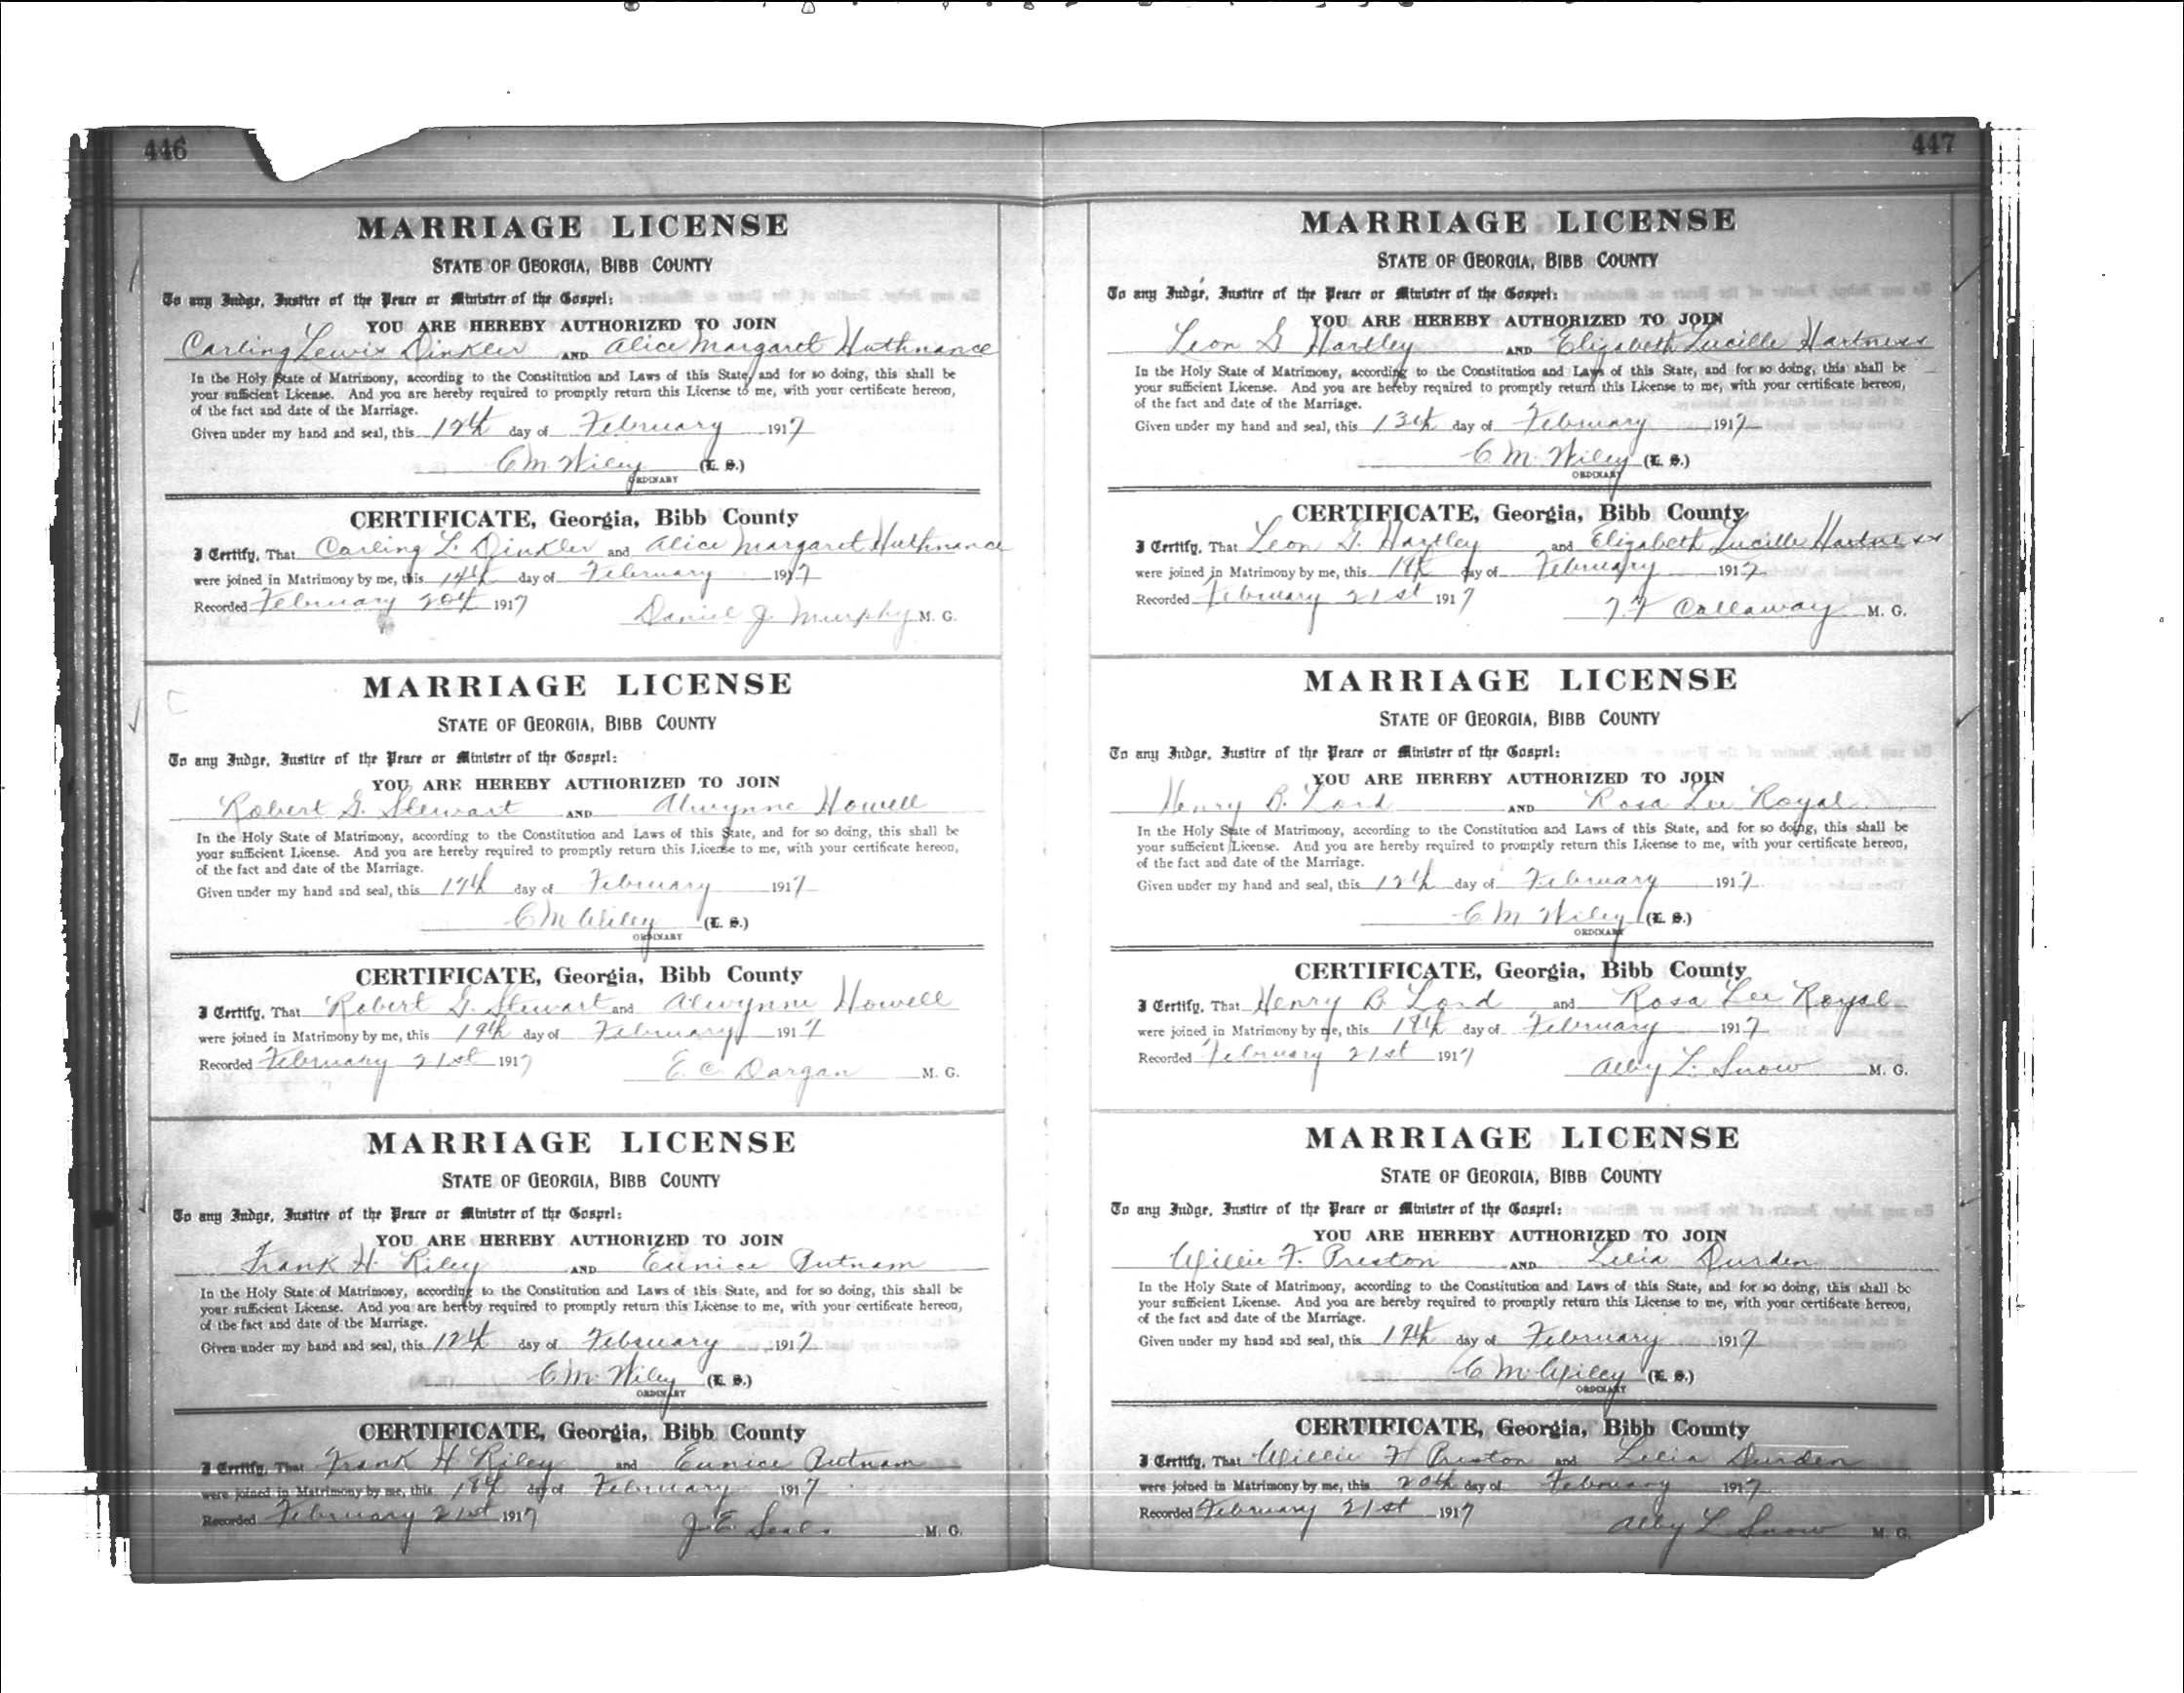 446
MARRIAGE LICENSE
STATE OF GEORGIA, BIBB COUNTY
To any Judge, Justice of the Peace or Minister of the Gospel:
YOU ARE HEREBY AUTHORIZED TO JOIN
Carling Lewis Dinkler AND Alice Margaret Huthnance
In the Holy State of Matrimony, according to the Constitution and Laws of this State, and for so doing, this shall be
your sufficient License. And you are hereby required to promptly return this License to me, with your certificate hereon,
of the fact and date of the Marriage.
Given under my hand and seal, this day of February 1917
C M Wiley (L. S.)
ORDINARY
CERTIFICATE, Georgia, Bibb County
I Certify, That Carling L. Dinkler and Alice Margaret Huthnance
were joined in Matrimony by me, this 14th day of February 1917
Recorded February 20th 1917 Daniel J. Murphy M. G.
MARRIAGE LICENSE
STATE OF GEORGIA, BIBB COUNTY
To any Judge, Justice of the Peace or Minister of the Gospel:
YOU ARE HEREBY AUTHORIZED TO JOIN
Robert G. Stewart AND Alwynne Howell
In the Holy State of Matrimony, according to the Constitution and Laws of this State, and for so doing, this shall be
your sufficient License. And you are hereby required to promptly return this License to me, with your certificate hereon,
of the fact and date of the Marriage.
Given under my hand and seal, this day of February 1917
C M Wiley (L. S.)
ORDINARY
CERTIFICATE, Georgia, Bibb County
I Certify, That Robert G. Stewart and Alwynne Howell
were joined in Matrimony by me, this 19th day of February 1917
Recorded February 21st 1917 E. C. Dargan M. G.
MARRIAGE LICENSE
STATE OF GEORGIA, BIBB COUNTY
To any Judge, Justice of the Peace or Minister of the Gospel:
YOU ARE HEREBY AUTHORIZED TO JOIN
Frank H. Riley AND Eunice Putnam
In the Holy State of Matrimony, according to the Constitution and Laws of this State, and for so doing, this shall be
your sufficient License. And you are hereby required to promptly return this License to me, with your certificate hereon,
of the fact and date of the Marriage.
Given under my hand and seal, this day of February 1917
C M. Wiley (L. S.)
ORDINARY
CERTIFICATE, Georgia, Bibb County
I Certify, That Frank H Riley and Eunice Putnam
were joined in Matrimony by me, this 18th day of February 1917
Recorded February 21st 1917 J. E. Seals M. G.
447
MARRIAGE LICENSE
STATE OF GEORGIA, BIBB COUNTY
To any Judge, Justice of the Peace or Minister of the Gospel:
YOU ARE HEREBY AUTHORIZED TO JOIN
Leon G Hartley AND Elizabeth Lucille Hartness
In the Holy State of Matrimony, according to the Constitution and Laws of this State, and for so doing, this shall be
your sufficient License. And you are hereby required to promptly return this License to me, with your certificate hereon,
of the fact and date of the Marriage.
Given under my hand and seal, this 13th day of February 1917
C M. Wiley (L. S.)
ORDINARY
CERTIFICATE, Georgia, Bibb County
I Certify, That Leon G. Hartley and Elizabeth Lucille Hartness
were joined in Matrimony by me, this 18th day of February 1917
Recorded February 21st 1917 T. F Callaway M. G.
MARRIAGE LICENSE
STATE OF GEORGIA, BIBB COUNTY
To any Judge, Justice of the Peace or Minister of the Gospel:
YOU ARE HEREBY AUTHORIZED TO JOIN
Henry B. Lord AND Rosa Lee Royal
In the Holy State of Matrimony, according to the Constitution and Laws of this State, and for so doing, this shall be
your sufficient License. And you are hereby required to promptly return this License to me, with your certificate hereon,
of the fact and date of the Marriage.
Given under my hand and seal, this day of February 1917
C M Wiley (L. S.)
ORDINARY
CERTIFICATE, Georgia, Bibb County
I Certify, That Henry B Lord and Rosa Lee Royal
were joined in Matrimony by me, this day of February 1917
Recorded February 21st 1917 Alby L. Snow M. G.
MARRIAGE LICENSE
STATE OF GEORGIA, BIBB COUNTY
To any Judge, Justice of the Peace or Minister of the Gospel:
YOU ARE HEREBY AUTHORIZED TO JOIN
Willie F. Preston AND Lelia Durden
In the Holy State of Matrimony, according to the Constitution and Laws of this State, and for so doing, this shall be
your sufficient License. And you are hereby required to promptly return this License to me, with your certificate hereon,
of the fact and date of the Marriage.
Given under my hand and seal, this day of February 1917
C M. Wiley (L. S.)
ORDINARY
CERTIFICATE, Georgia, Bibb County
I Certify, That Willie F Preston and Lelia Durden
were joined in Matrimony by me, this 20th day of February 1917
Recorded February 21st 1917 Alby L Snow M. G.